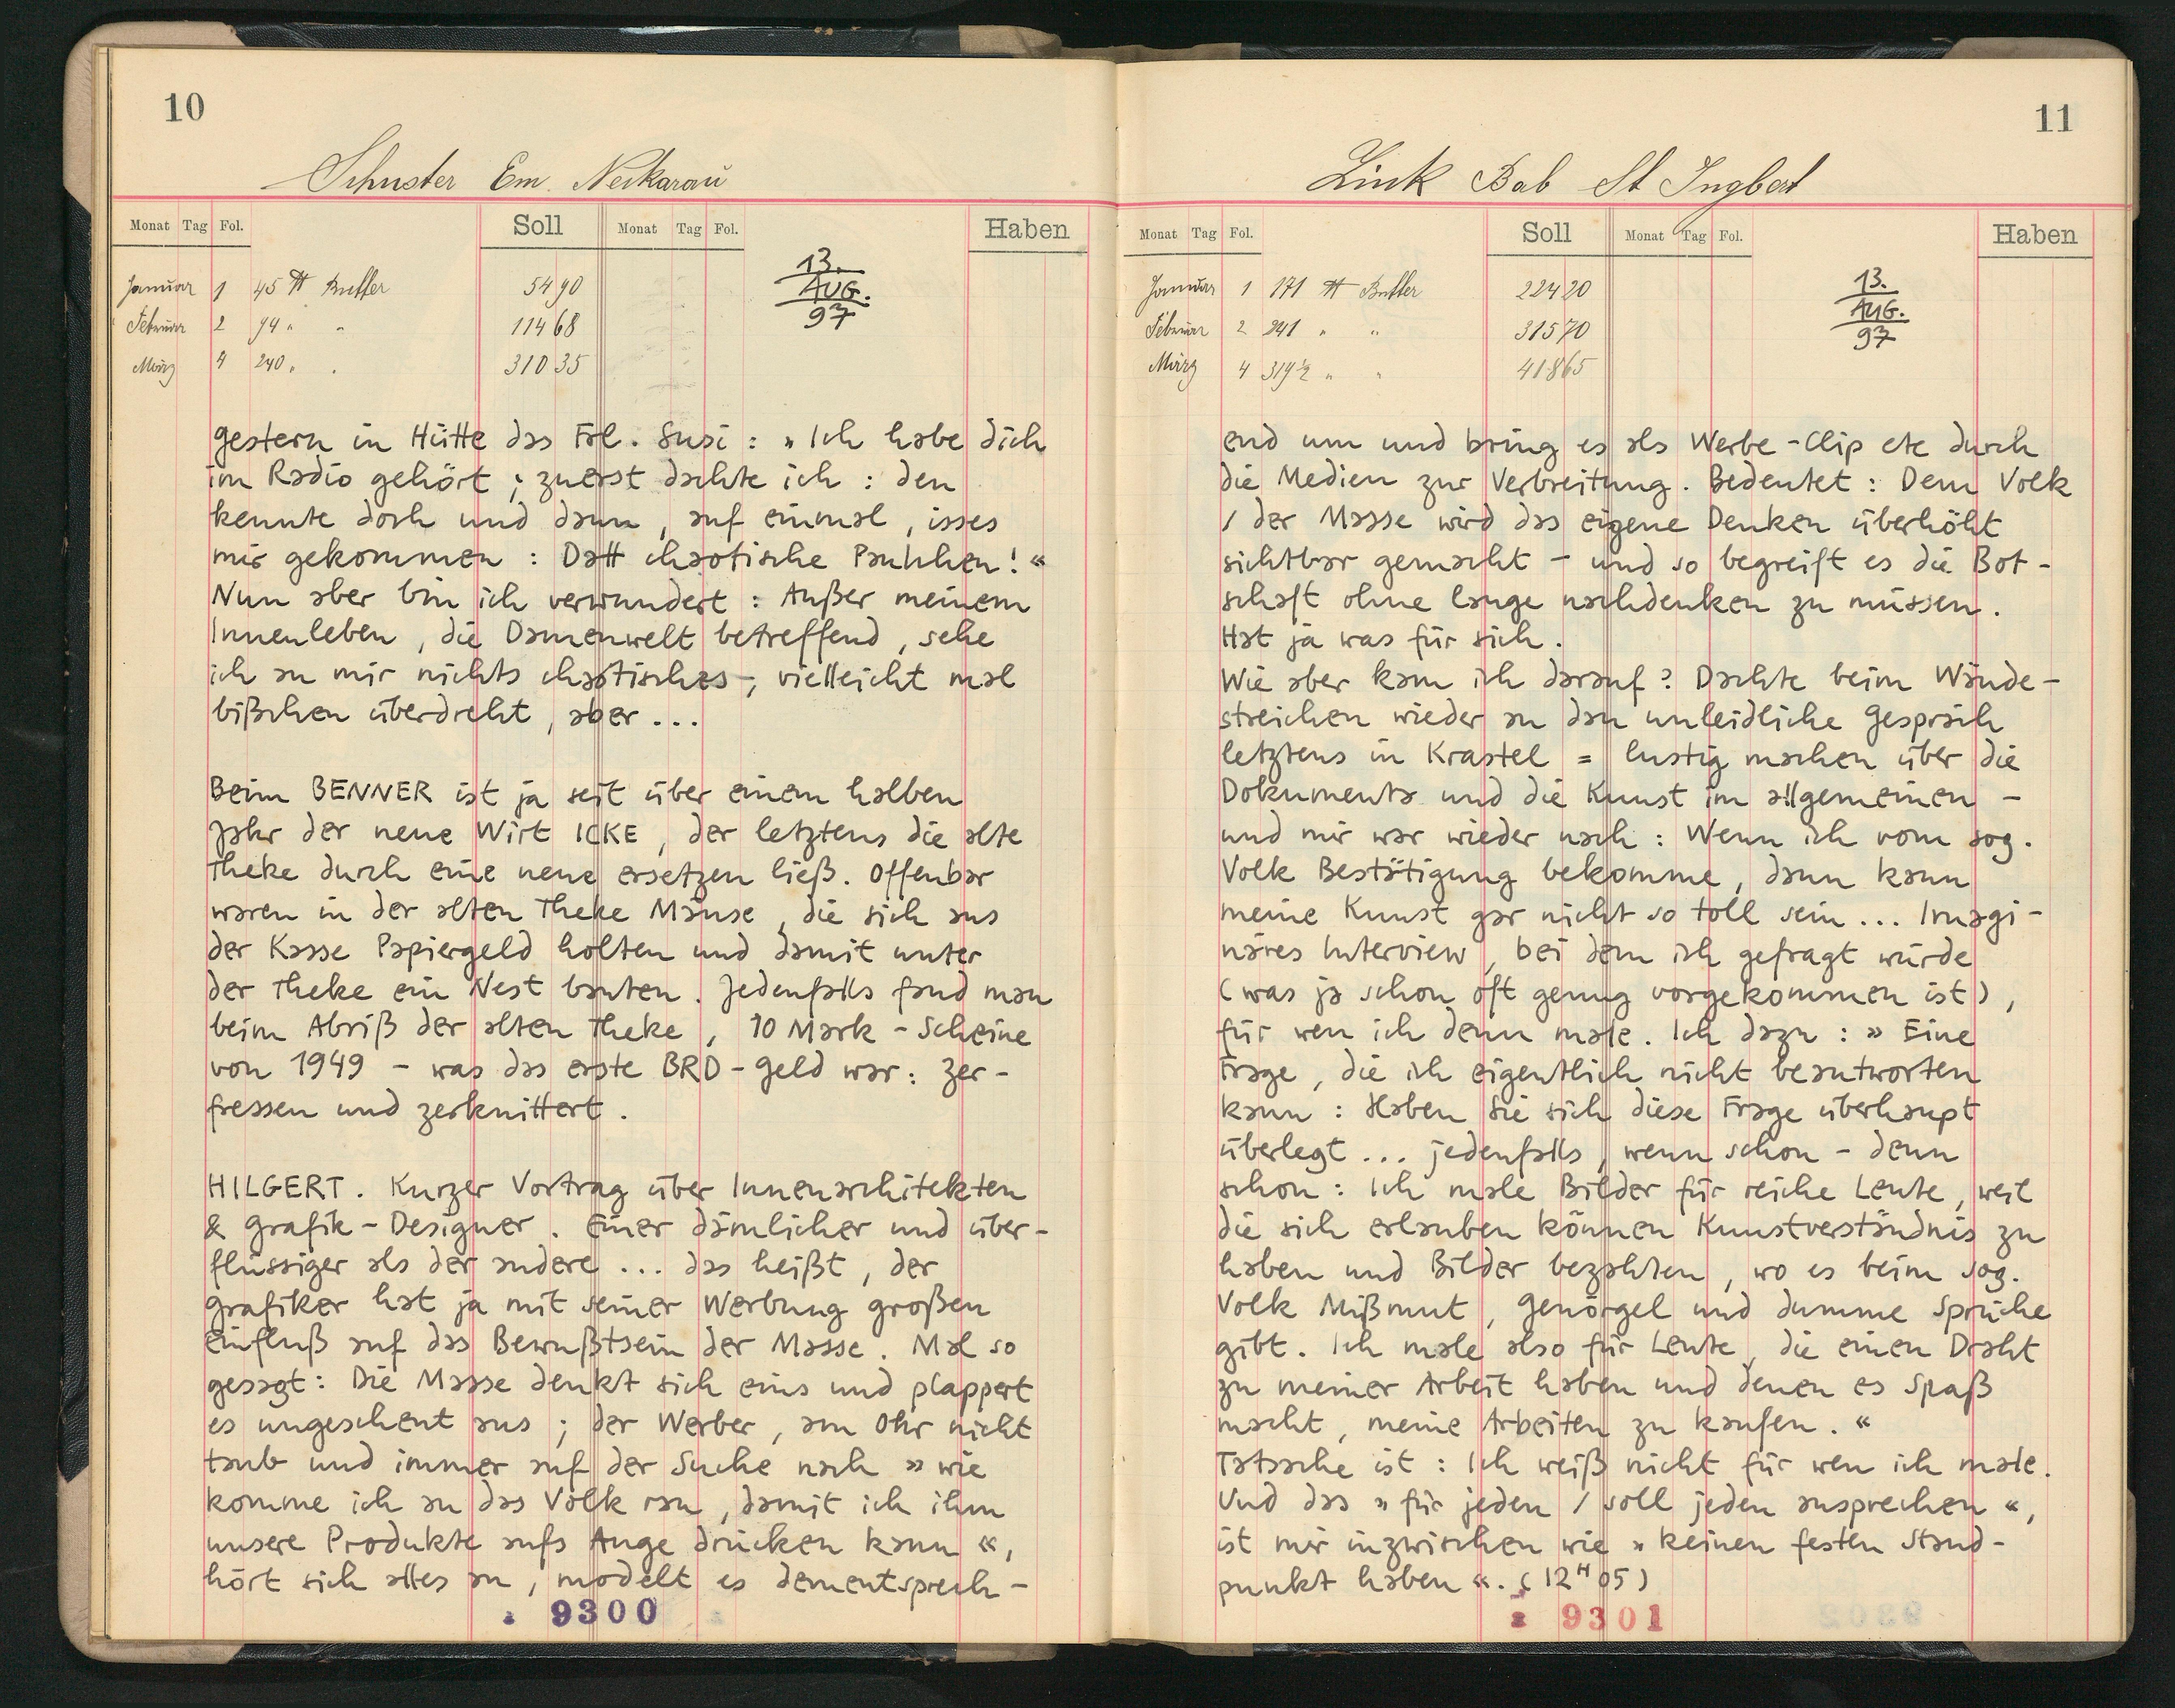 10
Schuster Em. Neckarau
Monat Tag Fol. Soll Monat Tag Fol. Haben
Januar 1 45 ℔ Butter 54 90
Februar 2 94 " " 114 68
März 4 240 " " 310 35
13.
AUG.
97
gestern in Hütte das Frl. Susi : » Ich habe dich
im Radio gehört ; zuerst dachte ich : den
kennste doch und dann, auf einmal, isses
mir gekommen : Datt chaotische Paulchen! «
Nun aber bin ich verwundert : Außer meinem
Innenleben, die Damenwelt betreffend, sehe
ich an mir nichts chaotisches -, vielleicht mal
bißchen überdreht, aber ...
Beim BENNER ist ja seit über einem halben
Jahr der neue Wirt ICKE, der letztens die alte
Theke durch eine neue ersetzen ließ. Offenbar
waren in der alten Theke Mäuse, die sich aus
der Kasse Papiergeld holten und damit unter
der Theke ein Nest bauten. Jedenfalls fand man
beim Abriß der alten Theke, 10 Mark - Scheine
von 1949 - was das erste BRD - Geld war : zer-
fressen und zerknittert.
HILGERT. Kurzer Vortrag über Innenarchitekten
& Grafik - Designer. Einer dämlicher und über-
flüssiger als der andere ... das heißt, der
Grafiker hat ja mit seiner Werbung großen
Einfluß auf das Bewußtsein der Masse. Mal so
gesagt : Die Masse denkt sich eins und plappert
es ungescheut aus ; der Werber, am Ohr nicht
taub und immer auf der Suche nach » wie
komme ich an das Volk ran, damit ich ihm
unsere Produkte aufs Auge drücken kann «,
hört sich alles an, modelt es dementsprech-
9300
11
Link Bab St Ingbert
Monat Tag Fol. Soll Monat Tag Fol. Haben
Januar 1 171 ℔ Butter 224 20
Februar 2 241 " " 315 70
März 4 319½ " " 418 65
13.
AUG.
97
end um und bring es als Werbe - Clip etc durch
die Medien zur Verbreitung. Bedeutet : Dem Volk
/ der Masse wird das eigene Denken überhöht
sichtbar gemacht - und so begreift es die Bot-
schaft ohne lange nachdenken zu müssen.
Hat ja was für sich.
Wie aber kam ich darauf? Dachte beim Wände-
streichen wieder an dan unleidliche Gespräch
letztens in Krastel = lustig machen über die
Dokumenta und die Kunst im allgemeinen -
und mir war wieder nach : Wenn ich vom sog.
Volk Bestätigung bekomme, dann kann
meine Kunst gar nicht so toll sein ... Imagi-
näres Interview, bei dem ich gefragt würde
(was ja schon oft genug vorgekommen ist),
für wen ich denn male. Ich dazu : » Eine
Frage, die ich eigentlich nicht beantworten
kann : Haben Sie sich diese Frage überhaupt
überlegt ... jedenfalls, wenn schon - denn
schon : Ich male Bilder für reiche Leute, weil
die sich erlauben können Kunstverständnis zu
haben und Bilder bezahlen, wo es beim sog.
Volk Mißmut, Genörgel und dumme Sprüche
gibt. Ich male also für Leute, die einen Draht
zu meiner Arbeit haben und denen es Spaß
macht, meine Arbeiten zu kaufen. «
Tatsache ist : Ich weiß nicht für wen ich male.
Und das » für jeden / soll jeden ansprechen «,
ist mir inzwischen wie » keinen festen Stand-
punkt haben «. (12ᴴ05)
9301